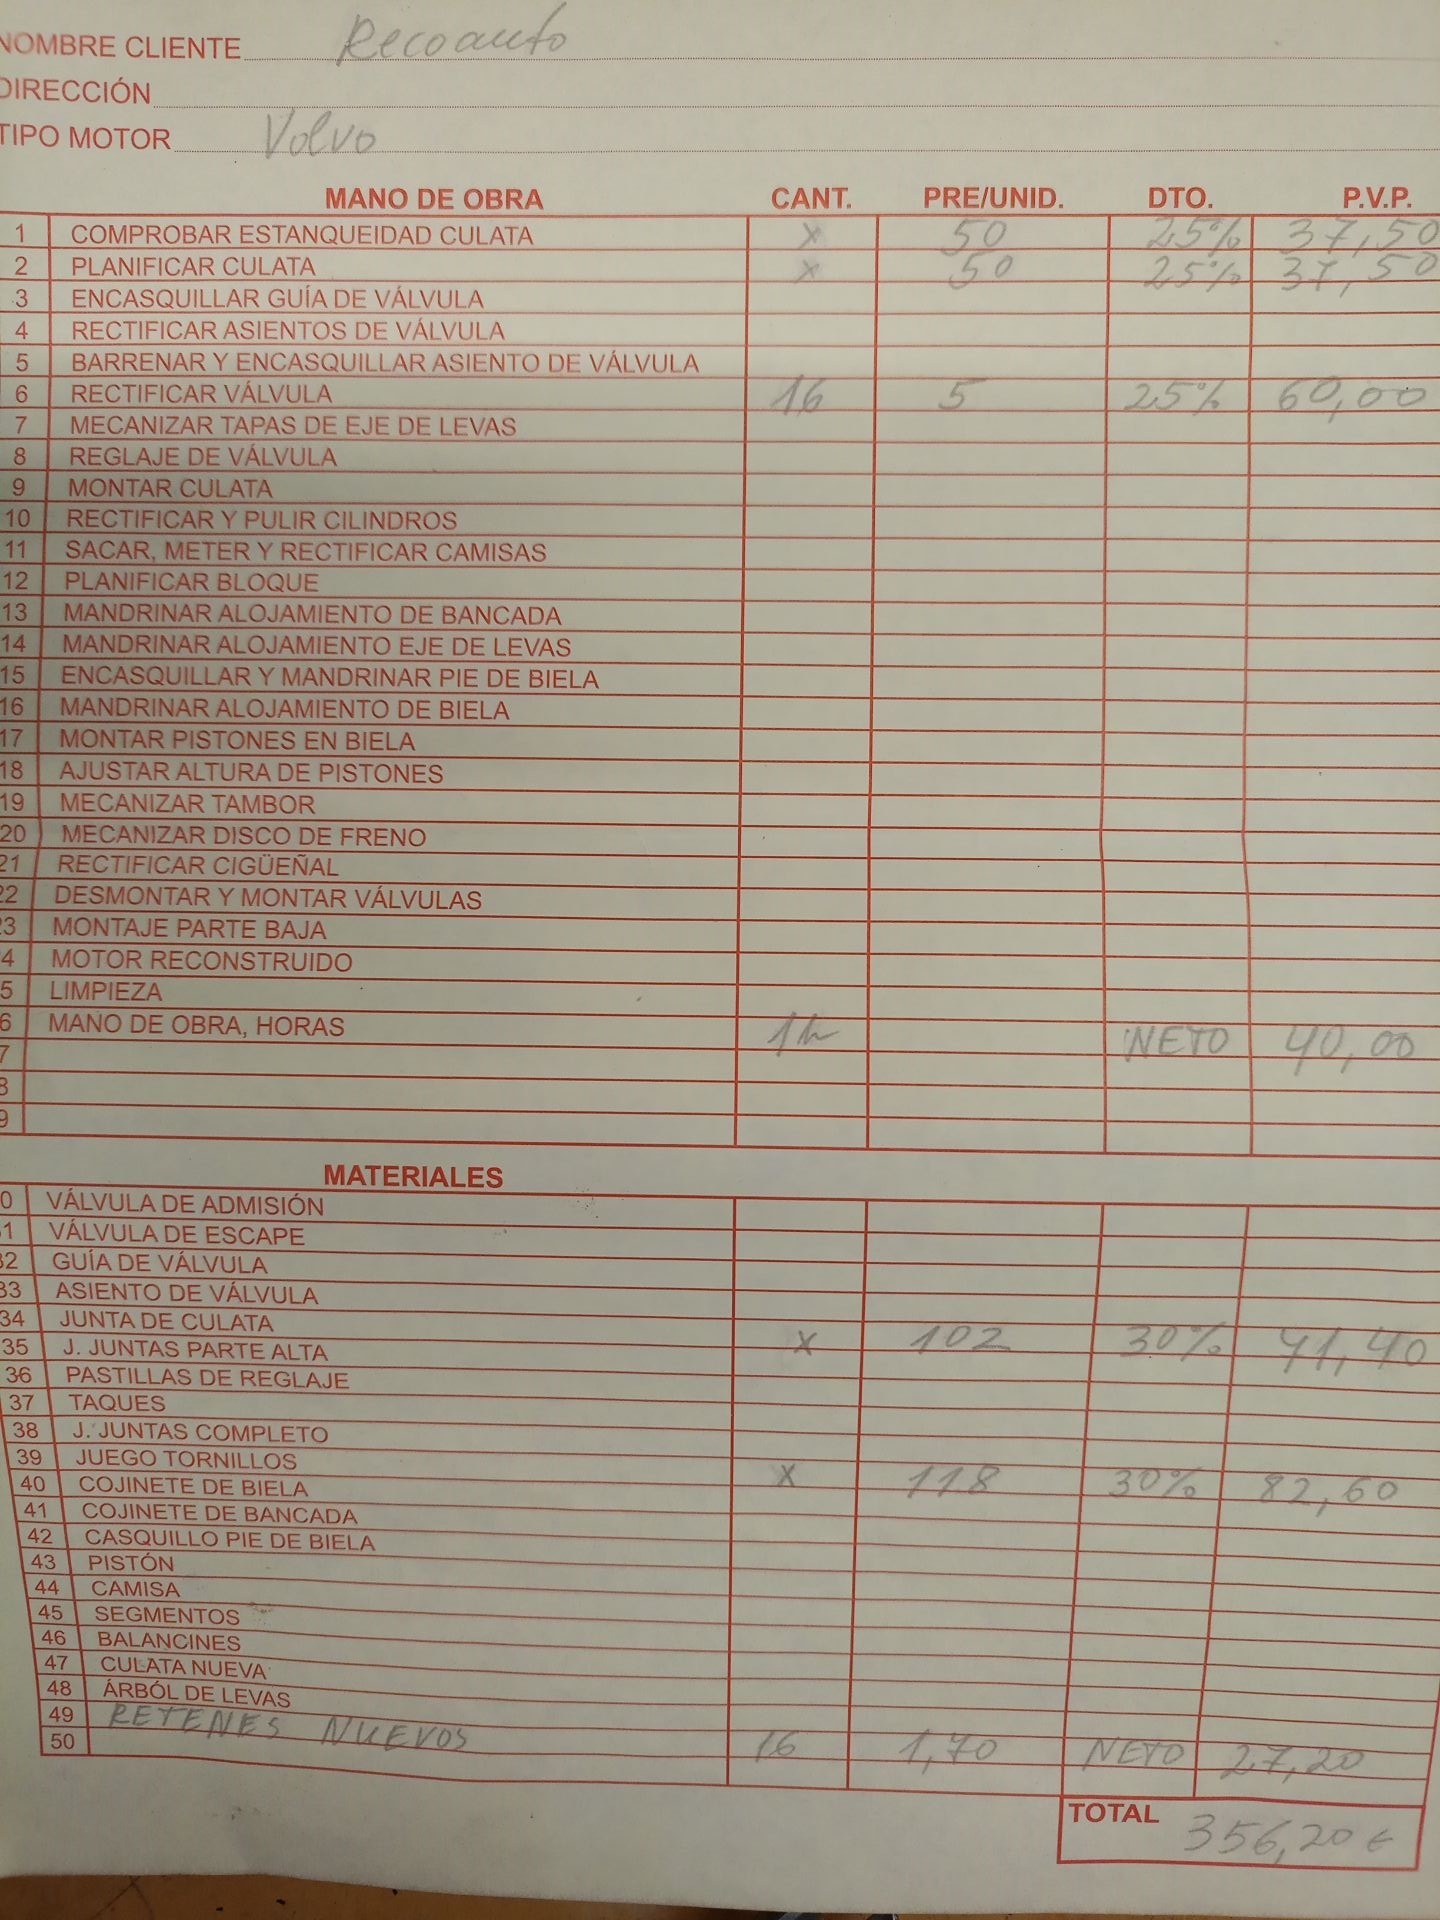 NOMBRE CLIENTE Recoauto
DIRECCIÓN
TIPO MOTOR Volvo
MANO DE OBRA CANT. PRE/UNID. DTO. P.V.P.
1 COMPROBAR ESTANQUEIDAD CULATA x 50 25% 37,50
2 PLANIFICAR CULATA x 50 25% 37,50
3 ENCASQUILLAR GUÍA DE VÁLVULA
4 RECTIFICAR ASIENTOS DE VÁLVULA
5 BARRENAR Y ENCASQUILLAR ASIENTO DE VÁLVULA
6 RECTIFICAR VÁLVULA 16 5 25% 60,00
7 MECANIZAR TAPAS DE EJE DE LEVAS
8 REGLAJE DE VÁLVULA
9 MONTAR CULATA
10 RECTIFICAR Y PULIR CILINDROS
11 SACAR, METER Y RECTIFICAR CAMISAS
12 PLANIFICAR BLOQUE
13 MANDRINAR ALOJAMIENTO DE BANCADA
14 MANDRINAR ALOJAMIENTO EJE DE LEVAS
15 ENCASQUILLAR Y MANDRINAR PIE DE BIELA
16 MANDRINAR ALOJAMIENTO DE BIELA
17 MONTAR PISTONES EN BIELA
18 AJUSTAR ALTURA DE PISTONES
19 MECANIZAR TAMBOR
20 MECANIZAR DISCO DE FRENO
21 RECTIFICAR CIGÜEÑAL
22 DESMONTAR Y MONTAR VÁLVULAS
23 MONTAJE PARTE BAJA
4 MOTOR RECONSTRUIDO
5 LIMPIEZA
6 MANO DE OBRA, HORAS 1h NETO 40,00
7
8
9
MATERIALES
0 VÁLVULA DE ADMISIÓN
31 VÁLVULA DE ESCAPE
32 GUÍA DE VÁLVULA
33 ASIENTO DE VÁLVULA
34 JUNTA DE CULATA
35 J. JUNTAS PARTE ALTA x 102 30% 71,40
36 PASTILLAS DE REGLAJE
37 TAQUES
38 J. JUNTAS COMPLETO
39 JUEGO TORNILLOS
40 COJINETE DE BIELA x 118 30% 82,60
41 COJINETE DE BANCADA
42 CASQUILLO PIE DE BIELA
43 PISTÓN
44 CAMISA
45 SEGMENTOS
46 BALANCINES
47 CULATA NUEVA
48 ÁRBÓL DE LEVAS
49 RETENES NUEVOS
50 16 1,70 NETO 27,20
TOTAL 356,20 €